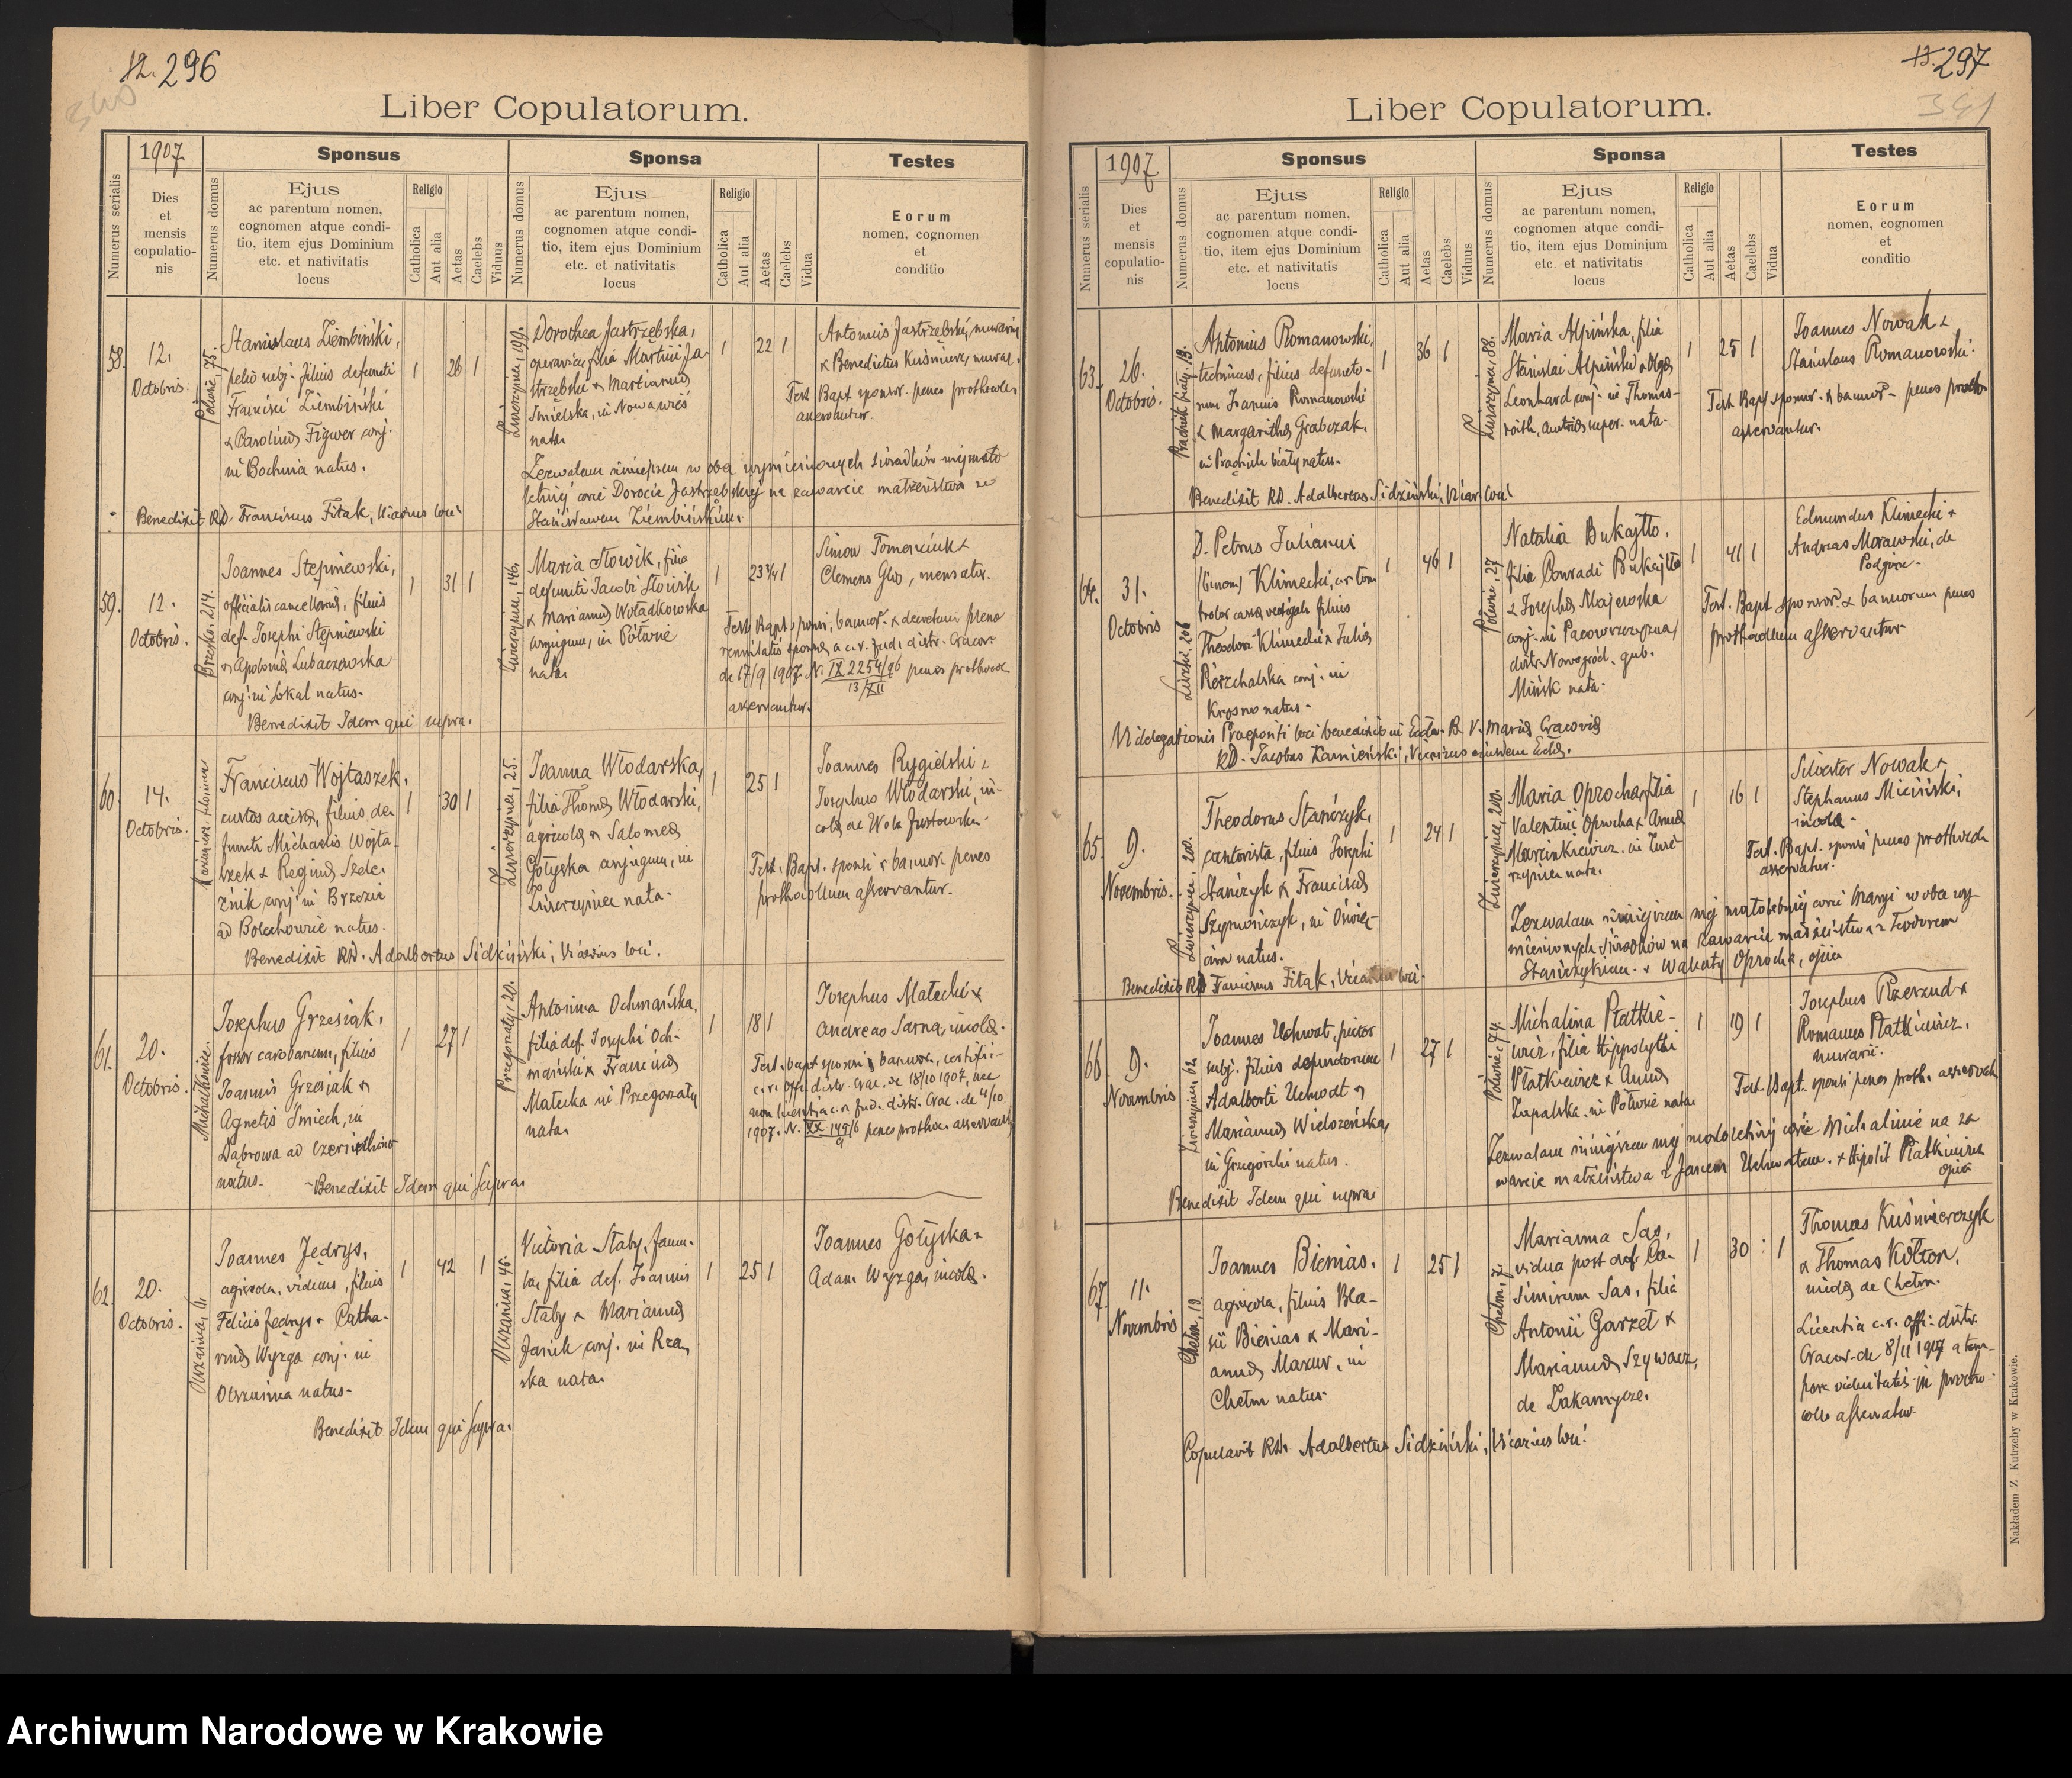 12. 296
340
Liber Copulatorum.
1907
Sponsus
Sponsa
Testes
Numerus serialis
Dies
et
mensis
copulatio-
nis
Numerus domus
Ejus
ac parentum nomen,
cognomen atque condi-
tio, item ejus Dominium
etc. et nativitatis
locus
Religio
Catholica
Aut alia
Aetas
Caelebs
Viduus
Numerus domus
Ejus
ac parentum nomen,
cognomen atque condi-
tio, item ejus Dominium
etc. et nativitatis
locus
Religio
Catholica
Aut alia
Aetas
Caelebs
Vidua
Eorum
nomen, cognomen
et
conditio
58.
12.
Octobris.
Stanislaus Ziembiński,
filius defuncti
Francisci Ziembiński
& Carolinæ Figwer conj.
in Bochnia natus.
1 26 1
Zwierzyniec, 190.
Dorothea Jastrzębska,
filia Martini Ja-
strzębski & Mariannæ
Śmielska, in Nowawieś
nata
1 22 1
Antonius Jastrzębski, murarius
& Benedictus Kuśnierz, murar.
Test Bapt sponsor. penes prothocol.
asservantur.
Zezwalam niniejszem w obec wymienionych świadków mej mało
letniej córce Dorocie Jastrzębskiej na zawarcie małżeństwa ze
Stanisławem Ziembińskim.
Benedixit RD. Franciscus Fitak, Vicarius loci
59.
12.
Octobris.
Brzesko. 214.
Joannes Stepniewski,
officialis cancellariæ, filius
def. Josephi Stepniewski
& Apoloniæ Lubaczewska
conj. in Sokal natus.
1 31 1
Zwierzyniec, 146.
Maria Słowik, filia
defuncti Jacobi Słowik
& Mariannæ Woladkowska
conjugum, in Półwsie
nata
1 23 3/4 1
Simon Tomasiuk &
Clemens Głos, mensator.
Test. Bapt. sponsi, bannor. & decretum plena
a c. r. Jud. distr. Cracov.
de 17/9 1907. N. IX 2254/96 penes prothocol
13/XII
asservantur.
Benedixit Idem qui supra.
60.
14.
Octobris.
Franciscus Wojtaszek,
custos accisæ, filius de
functi Michaelis Wojta-
szek & Reginæ Szele-
źnik conj. in Brzezie
ad Bolechowie natus.
1 30 1
Zwierzyniec, 25.
Joanna Włodarska,
filia Thomæ Włodarski,
agricolæ & Salomeæ
Gołyska conjugum, in
Zwierzyniec nata.
1 25 1
Joannes Rygielski &
Josephus Włodarski, in-
colæ de Wola Justowska.
Test. Bapt. sponsi & bannor. penes
prothocollum asservantur.
Benedixit RD. Adalbertus Sidziński, Vicarius loci.
61.
20.
Octobris.
Michałkowice.
Josephus Grzesiak,
fossor carbonum, filius
Joannis Grzesiak &
Agnetis Śmiech, in
Dąbrowa ad
natus.
1 27 1
Przegorzały, 20.
Antonina Ochmańska,
filia def. Josephi Och-
mański & Franciscæ
Małecka in Przegorzały
nata.
1 18 1
Josephus Małecki &
Andreas Sarna, incolæ.
Test. bapt sponsi, bannor.,
c. r. offi. distr. Crac. de 18/10 1907, nec
non licentia c. r. Jud. distr. Crac. de 4/10
1907. N. penes prothoc. asservantur
Benedixit Idem qui supra
62.
20.
Octobris.
Olszanica,
Joannes Jędrys,
agricola, viduus, filius
Felicis Jędrys & Catha-
rinæ Wyżga conj. in
Olszanica natus.
1 42 1
Olszanica, 45.
Victoria Słaby, famu-
la, filia def. Joannis
Słaby & Mariannæ
Janik conj. in Rzą
ska nata.
1 25 1
Joannes Gołyska &
Adam Wyżga, incolæ.
Benedixit Idem qui supra.
13. 297
341
Liber Copulatorum.
1907
Sponsus
Sponsa
Testes
Numerus serialis
Dies
et
mensis
copulatio-
nis
Numerus domus
Ejus
ac parentum nomen,
cognomen atque condi-
tio, item ejus Dominium
etc. et nativitatis
locus
Religio
Catholica
Aut alia
Aetas
Caelebs
Viduus
Numerus domus
Ejus
ac parentum nomen,
cognomen atque condi-
tio, item ejus Dominium
etc. et nativitatis
locus
Religio
Catholica
Aut alia
Aetas
Caelebs
Vidua
Eorum
nomen, cognomen
et
conditio
63.
26.
Octobris.
Prądnik biały. 13.
Antonius Romanowski,
technicus, filius defuncto-
rum Joannis Romanowski
& Margarithæ Grabczak,
in Prądnik biały natus.
1 36 1
Zwierzyniec, 88.
Maria Alpińska, filia
Stanislai Alpiński & Olgæ
Leonhard conj. in Thomas-
roith, Austriæ super. nata.
1 25 1
Joannes Nowak &
Stanislaus Romanowski.
Test Bapt sponsor. & bannor. penes proth.
asservantur.
Benedixit RD. Adalbertus Sidziński, Vicar. loci
64.
31.
Octobris
206
D. Petrus Julianus
(binom) Klimecki,
filius
Theodori Klimecki & Juliæ
conj. in
Krosno natus.
1 46 1
Półwsie, 27
Natalia Bukajtło,
filia Conradi Bukajtło
& Josephæ Majewska
conj. in
distr. Nowogród, gub.
Mińsk nata.
1 41 1
Edmundus Klimecki &
Andreas Morawski, de
Podgórze.
Test. Bapt. sponsor. & bannorum penes
prothocollum asservantur
Vi delegationis Praepositi loci benedixit in Eccla. B. V. Mariæ Cracoviæ
RD. Jacobus Kamieński, Vicarius eiusdem Eccla.
65.
9.
Novembris.
Zwierzyniec. 200.
Theodorus Stańczyk,
filius Josephi
Stańczyk & Franciscæ
Szymończyk, in Oświę-
cim natus.
1 24 1
Zwierzyniec, 200.
Maria Oprocha, filia
Valentini Oprocha & Annæ
Marcinkiewicz. in Zwie-
rzyniec nata.
1 16 1
Silvester Nowak &
Stephanus Miciński,
incolæ.
Test. Bapt. sponsi penes prothocol
asservatur.
Zezwalam niniejszem mej małoletniej córce Maryi w obec wy
mienionych świadków na zawarcie małżeństwa z Teodorem
Stańczykiem. + Walenty Oprocha, ojciec
Benedixit RD Franciscus Fitak, Vicarius loci.
66
9.
Novembris
Zwierzyniec 62
Joannes Uchwat, pictor
subj. filius defunctorum
Adalberti Uchwat &
Mariannæ Widozeńska,
in Grzegórzki natus.
1 27 1
Półwsie 74.
Michalina Płatkie-
wicz, filia Hippolythi
Płatkiewicz & Annæ
Zapalska. in Półwsie nata
1 19 1
Josephus Rzerzud &
Romanus Płatkiewicz,
murarii.
Test. Bapt. sponsi penes proth. asservat.
Zezwalam niniejszem mej małoletniej córce Michalinie na za
warcie małżeństwa z Janem Uchwatem. + Hipolit Płatkiewicz
ojciec
Benedixit Idem qui supra
67.
11.
Novembris
Chełm, 19.
Joannes Bienias,
agricola, filius Bla-
sii Bienias & Mari-
annæ Mazur, in
Chełm natus.
1 25 1
Chełm, 7.
Marianna Sas,
vidua post def. Ca-
simirum Sas, filia
Antonii Garzeł &
Mariannæ Szywacz,
de Zakamycze.
1 30 : 1
Thomas Kuśmierczyk
& Thomas Kołton,
incolæ de Chełm.
Licentia c. r. offi. distr.
Cracov. de 8/11 1907 a tem-
pore viduitatis in protho-
collo asservatur.
Copulavit RD. Adalbertus Sidziński, Vicarius loci.
Nakładem Z. Kutrzeby w Krakowie.
Archiwum Narodowe w Krakowie